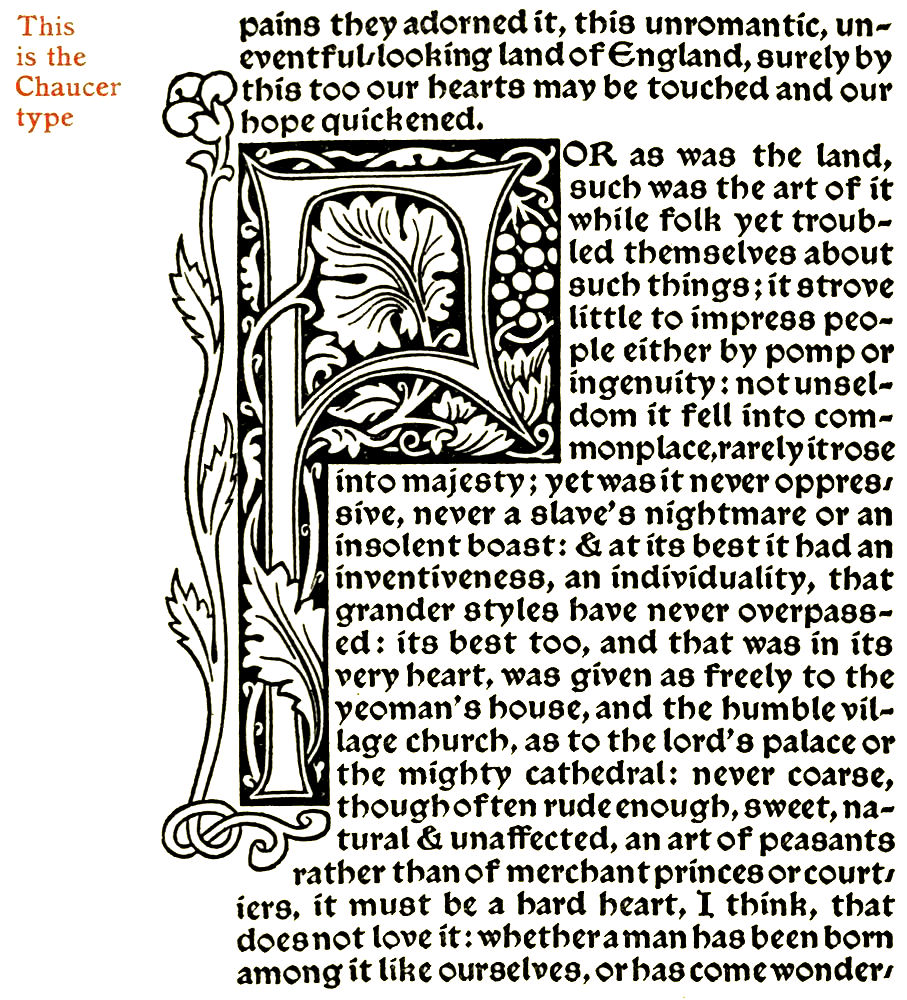 This
is the
Chaucer
type
pains they adorned it, this unromantic, un-
eventful-looking land of England, surely by
this too our hearts may be touched and our
hope quickened.
FOR as was the land,
such was the art of it
while folk yet troub-
led themselves about
such things; it strove
little to impress peo-
ple either by pomp or
ingenuity: not unsel-
dom it fell into com-
monplace, rarely it rose
into majesty; yet was it never oppres-
sive, never a slave's nightmare or an
insolent boast: & at its best it had an
inventiveness, an individuality, that
grander styles have never overpass-
ed: its best too, and that was in its
very heart, was given as freely to the
yeoman's house, and the humble vil-
lage church, as to the lord's palace or
the mighty cathedral: never coarse,
though often rude enough, sweet, na-
tural & unaffected, an art of peasants
rather than of merchant princes or court-
iers, it must be a hard heart, I think, that
does not love it: whether a man has been born
among it like ourselves, or has come wonder-